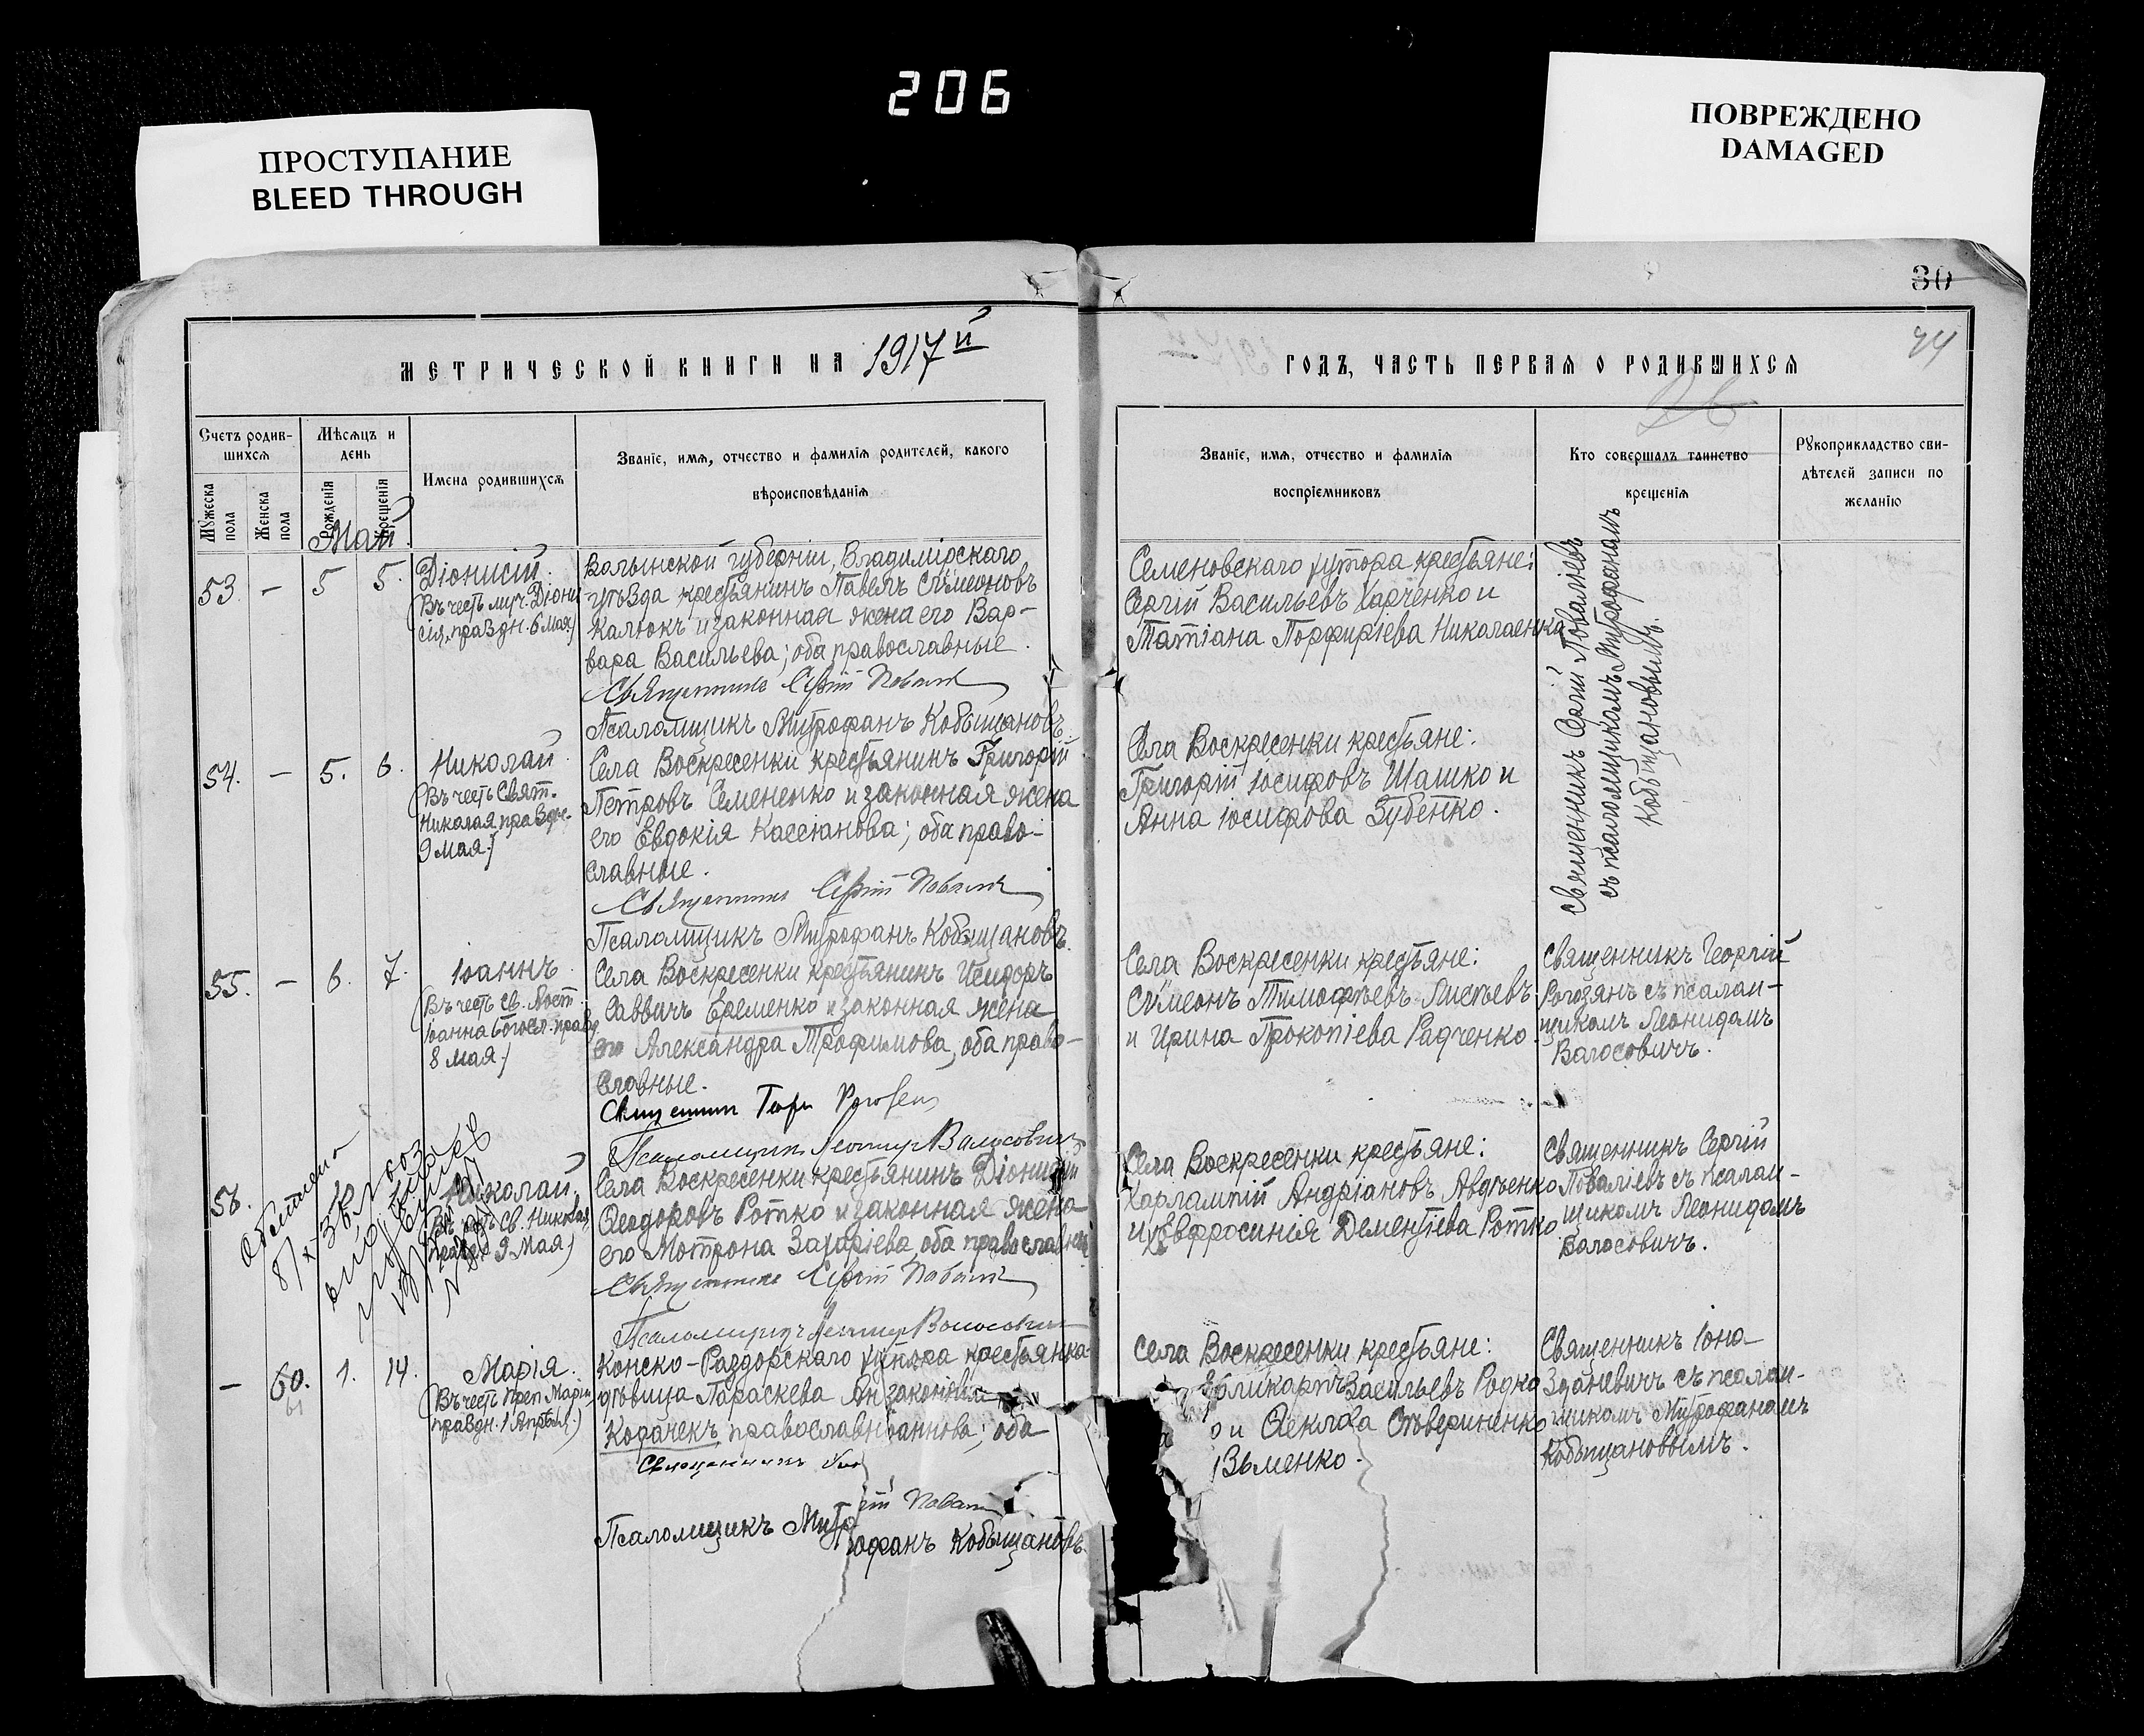 206
ПРОСТУПАНИЕ
BLEED THROUGH
ПОВРЕЖДЕНО
DAMAGED
30
МЕТРИЧЕСКОЙ КНИГИ НА 1917й
ГОДЪ, ЧАСТЬ ПЕРВАЯ О РОДИВШИХСЯ
Счетъ родив-
шихся
Мѣсяцъ и
день
Имена родившихся
Званіе, имя, отчество и фамилія родителей, какого
вѣроисповѣданія
Званіе, имя, отчество и фамилія
воспріемниковъ
Кто совершалъ таинство
крещенія
Рукоприкладство сви-
дѣтелей записи по
желанію
Мужеска
пола
Женска
пола
Рожденія
Крещенія
Май
53. - 5 5.
Діонисій.
(Въ честь муч. Діони
сія, праздн. 6 мая.)
Волынской губерніи, Владимірскаго
уѣзда крестьянинъ Павелъ Сѵмеоновъ
Калюкъ и законная жена его Вар-
вара Васильева; оба православные.
Священникъ Сергій
Псаломщикъ Митрофанъ Кобыщановъ.
Семеновскаго хутора крестьяне:
Сергій Васильевъ Харченко и
Татіана Порфиріева Николаенка
Священникъ Сергій Поваліевъ
съ псаломщикомъ Митрофаномъ
Кобыщановымъ.
54. - 5. 6.
Николай.
(Въ честь Свят.
Николая, праздн.
9 мая.)
Села Воскресенки крестьянинъ Григорій
Петровъ Семененко и законная жена
его Евдокія Кассіанова; оба право-
славные.
Священникъ Сергій
Псаломщикъ Митрофанъ Кобыщановъ.
Села Воскресенки крестьяне:
Григорій Іосифовъ Шашко и
Анна Іосифова Зубенко.
55. - 6. 7.
Іоаннъ.
(Въ честь св. Апост.
Іоанна Богосл. празд.
8 мая.)
Села Воскресенки крестьянинъ Исидоръ
Саввичъ Еременко и законная жена
его Александра Трофимова, оба право-
славные.
Священникъ
Псаломщикъ
Села Воскресенки крестьяне:
Сѵмеонъ Тимофѣевъ
и Ирина Прокопіева Радченко
Священникъ Георгій
съ псалом-
щикомъ Леонидомъ
56.
Николай.
св. Николая,
9 мая.)
Села Воскресенки крестьянинъ Діонисій
Ѳеодоровъ Ротко и законная жена
его Мотрона Захаріева, оба православные
Священникъ Сергій
Псаломщикъ
Села Воскресенки крестьяне:
Харлампій Андріановъ Авдѣенко
и Евфросинія Дементіева Ротко
Священникъ Сергій
Поваліевъ съ псалом-
щикомъ Леонидомъ
- 60. 1. 14.
61
Марія.
(Въ честь Преп. Маріи,
праздн. 1 Апрѣля.)
Конско-Раздорскаго хутора крестьянка
дѣвица Параскева
Корачекъ православн
оба
Священникъ
Псаломщикъ Митр
рофанъ Кобыщановъ
Села Воскресенки крестьяне:
Васильевъ
и Ѳекла
Священникъ Іона
Здановичъ съ псалом-
щикомъ Митрофаномъ
Кобыщановымъ.